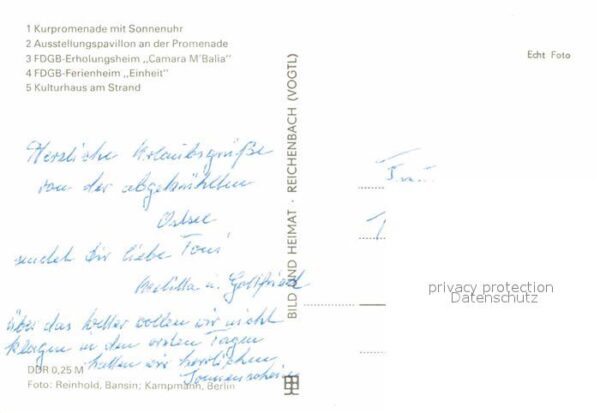 1 Kurpromenade mit Sonnenuhr
2 Ausstellungspavillon an der Promenade
3 FDGB-Erholungsheim „Camara M'Balia“
4 FDGB-Ferienheim „Einheit“
5 Kulturhaus am Strand
Echt Foto
BILD UND HEIMAT · REICHENBACH (VOGTL)
Herzliche Urlaubsgrüße
von der abgekühlten
Ostsee
sendet Dir liebe Toni
Melitta u. Gottfried
über das Wetter wollen wir nicht
klagen in den ersten Tagen
hatten wir herrlichen
Sonnenschein
DDR 0,25 M
Foto: Reinhold, Bansin; Kampmann, Berlin
privacy protection
Datenschutz